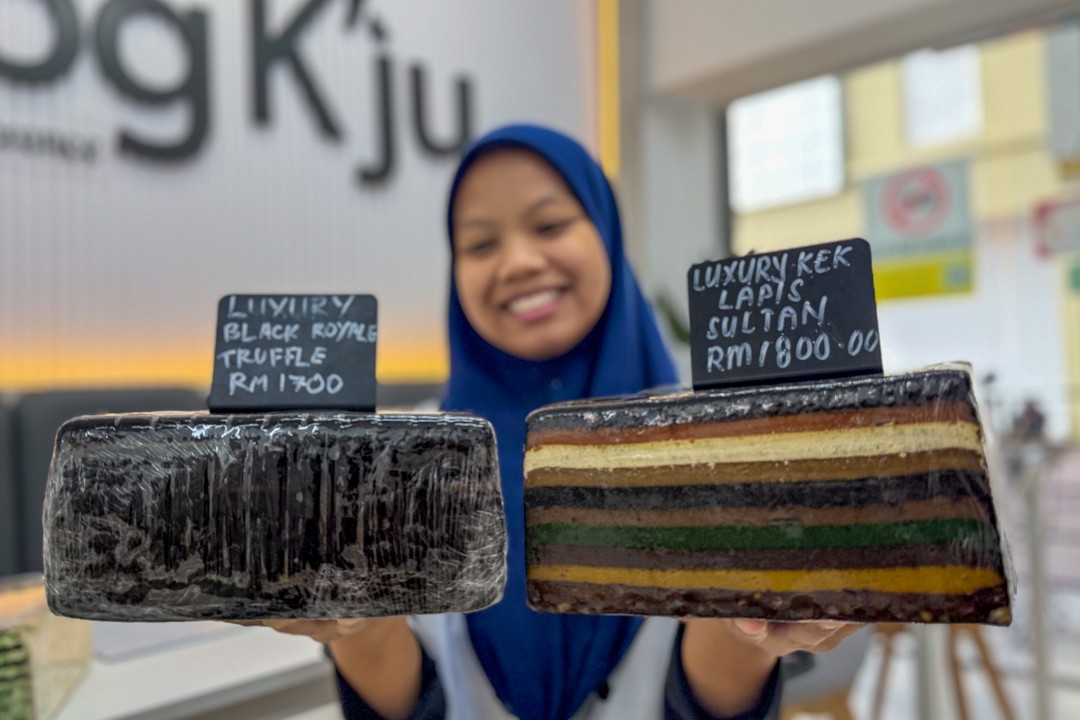 og K'ju
LUXURY
BLACK ROYALE
TRUFFLE
RM 1700
LUXURY KEK
LAPIS
SULTAN
RM1800.00